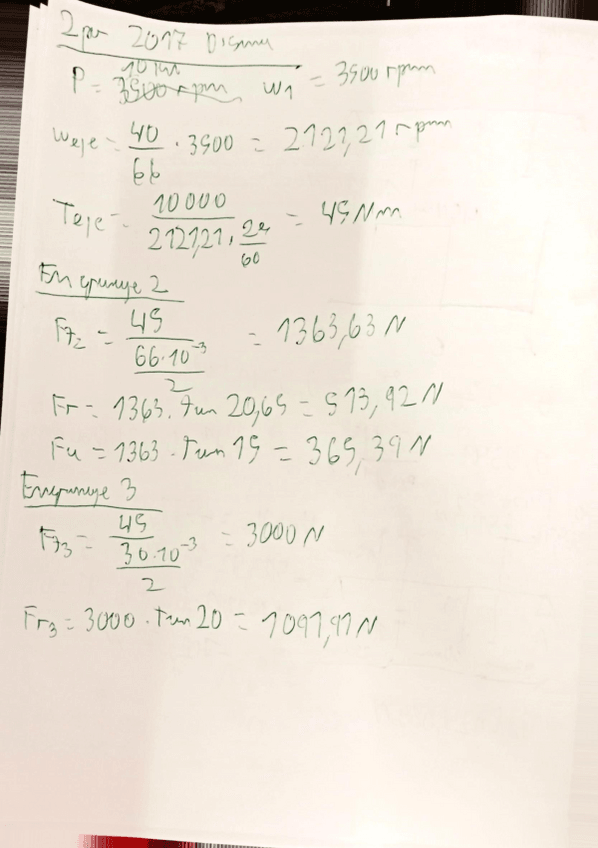 2pm 2017 Diseny
P = 3500 rpm 10 kw w1 = 3500 rpm
weje = 40/66 · 3500 = 2121,21 rpm
Teje = 10000/(2121,21 · 2π/60) = 45 Nm
Engranaje 2
Ft2 = 45/(66·10^-3/2) = 1363,63 N
Fr = 1363 · tan 20,65 = 513,92 N
Fa = 1363 · tan 15 = 365,39 N
Engranaje 3
Ft3 = 45/(30·10^-3/2) = 3000 N
Fr3 = 3000 · tan 20 = 1091,91 N